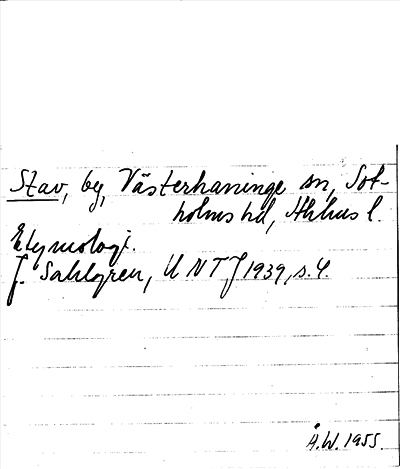 Stav, by, Västerhaninge sn, Sot-
holms hd, Sthlms l.
Etymologi.
J. Sahlgren, UNTJ 1939, s. 4.
Å.W. 1955.